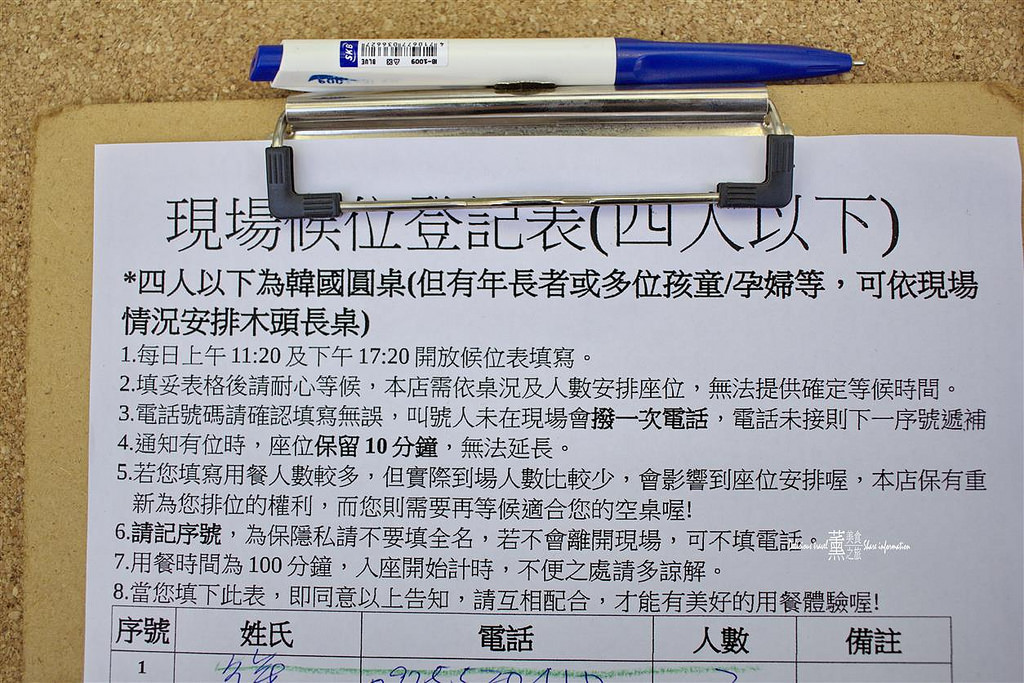 SKB
4710677036627
IB-1009
BLUE
現場候位登記表(四人以下)
*四人以下為韓國圓桌(但有年長者或多位孩童/孕婦等，可依現場
情況安排木頭長桌)
1.每日上午 11:20 及下午 17:20 開放候位表填寫。
2.填妥表格後請耐心等候，本店需依桌況及人數安排座位，無法提供確定等候時間。
3.電話號碼請確認填寫無誤，叫號人未在現場會撥一次電話，電話未接則下一序號遞補
4.通知有位時，座位保留 10 分鐘，無法延長。
5.若您填寫用餐人數較多，但實際到場人數比較少，會影響到座位安排喔，本店保有重
新為您排位的權利，而您則需要再等候適合您的空桌喔!
6.請記序號，為保隱私請不要填全名，若不會離開現場，可不填電話。
Delicious travel 薰 美食之旅 Share information
7.用餐時間為 100 分鐘，入座開始計時，不便之處請多諒解。
8.當您填下此表，即同意以上告知，請互相配合，才能有美好的用餐體驗喔!
序號 姓氏 電話 人數 備註
1